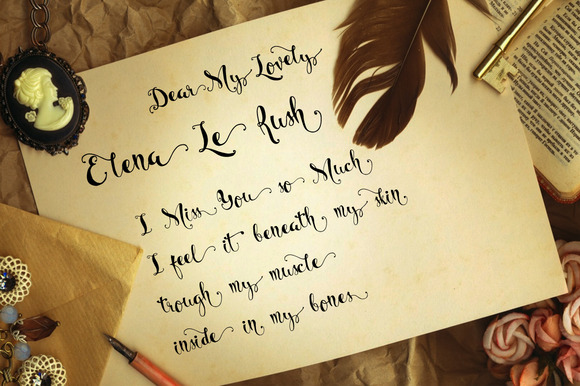 Dear My Lovely
Elena Le Rush
I Miss You so Much
I feel it beneath my skin
trough my muscle
inside in my bones